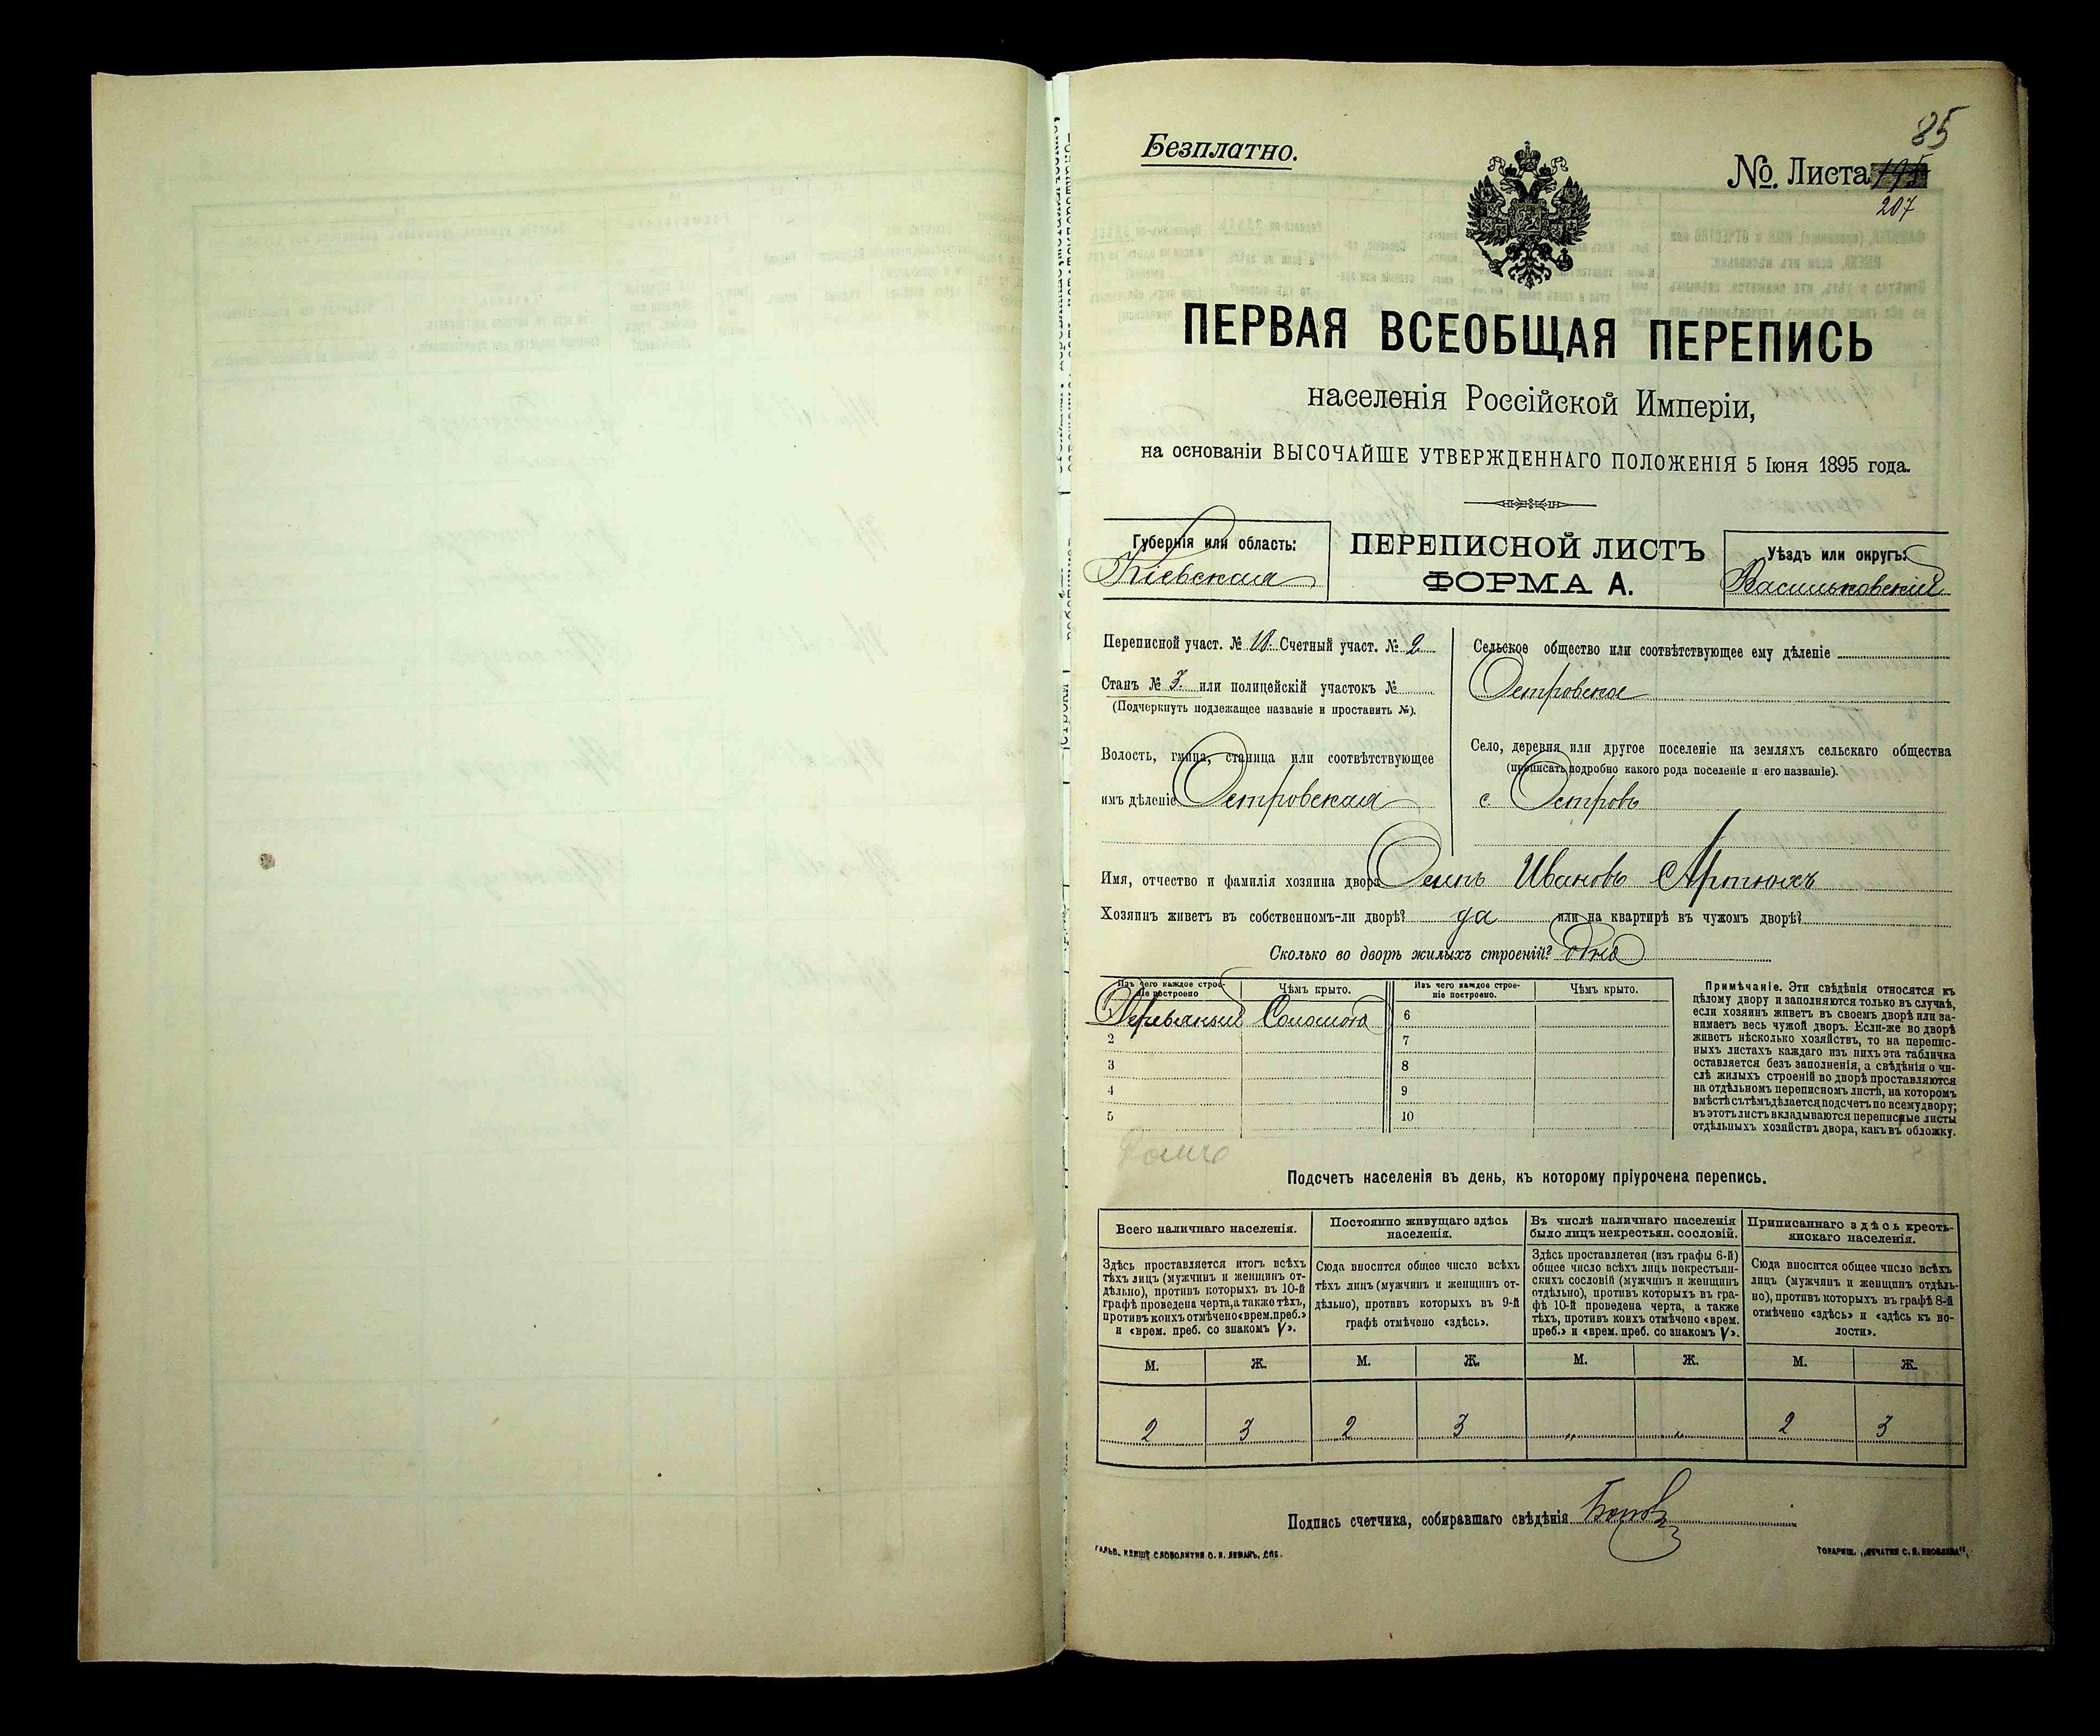 85
Безплатно.
№. Листа 195
207
ПЕРВАЯ ВСЕОБЩАЯ ПЕРЕПИСЬ
населенія Россійской Имперіи,
на основаніи ВЫСОЧАЙШЕ УТВЕРЖДЕННАГО ПОЛОЖЕНІЯ 5 Іюня 1895 года.
Губернія или область:
Кіевская
ПЕРЕПИСНОЙ ЛИСТЪ
ФОРМА А.
Уѣздъ или округъ:
Васильковскій
Переписной участ. № 18. Счетный участ. № 2
Станъ № 3. или полицейскій участокъ №
(Подчеркнуть подлежащее названіе и проставить №).
Волость, гмина, станица или соотвѣтствующее
имъ дѣленіе Островская
Сельское общество или соотвѣтствующее ему дѣленіе
Островское
Село, деревня или другое поселеніе на земляхъ сельскаго общества
(прописать подробно какого рода поселеніе и его названіе).
с. Островъ
Имя, отчество и фамилія хозяина двора Осипъ Ивановъ Артюхъ
Хозяинъ живетъ въ собственномъ-ли дворѣ? да или на квартирѣ въ чужомъ дворѣ?
Сколько во дворѣ жилыхъ строеній? одно
Изъ чего каждое строе-
ніе построено
Чѣмъ крыто.
Изъ чего каждое строе-
ніе построено.
Чѣмъ крыто.
Деревяный Соломою 6
2 7
3 8
4 9
5 10
Примѣчаніе. Эти свѣдѣнія относятся къ
цѣлому двору и заполняются только въ случаѣ,
если хозяинъ живетъ въ своемъ дворѣ или за-
нимаетъ весь чужой дворъ. Если-же во дворѣ
живетъ нѣсколько хозяйствъ, то на перепис-
ныхъ листахъ каждаго изъ нихъ эта табличка
оставляется безъ заполненія, а свѣдѣнія о чи-
слѣ жилыхъ строеній во дворѣ проставляются
на отдѣльномъ переписномъ листѣ, на которомъ
вмѣстѣ съ тѣмъ дѣлается подсчетъ по всему двору;
въ этотъ листъ вкладываются переписные листы
отдѣльныхъ хозяйствъ двора, какъ въ обложку.
Подсчетъ населенія въ день, къ которому пріурочена перепись.
Всего наличнаго населенія.
Здѣсь проставляется итогъ всѣхъ
тѣхъ лицъ (мужчинъ и женщинъ от-
дѣльно), противъ которыхъ въ 10-й
графѣ проведена черта, а также тѣхъ,
противъ коихъ отмѣчено «врем. преб.»
и «врем. преб. со знакомъ V».
Постоянно живущаго здѣсь
населенія.
Сюда вносится общее число всѣхъ
тѣхъ лицъ (мужчинъ и женщинъ от-
дѣльно), противъ которыхъ въ 9-й
графѣ отмѣчено «здѣсь».
Въ числѣ наличнаго населенія
было лицъ некрестьян. сословій.
Здѣсь проставляется (изъ графы 6-й)
общее число всѣхъ лицъ некрестьян-
скихъ сословій (мужчинъ и женщинъ
отдѣльно), противъ которыхъ въ гра-
фѣ 10-й проведена черта, а также
тѣхъ, противъ коихъ отмѣчено «врем.
преб.» и «врем. преб. со знакомъ V».
Приписаннаго здѣсь кресть-
янскаго населенія.
Сюда вносится общее число всѣхъ
лицъ (мужчинъ и женщинъ отдѣль-
но), противъ которыхъ въ графѣ 8-й
отмѣчено «здѣсь» и «здѣсь къ во-
лости».
М. Ж. М. Ж. М. Ж. М. Ж.
2 3 2 3 " " 2 3
Подпись счетчика, собиравшаго свѣдѣнія
СЛОВОЛИТНЯ О. И. ЛЕМАНЪ, СПБ.
ТОВАРИЩ. „ПЕЧАТНЯ С. П. ЯКОВЛЕВА",